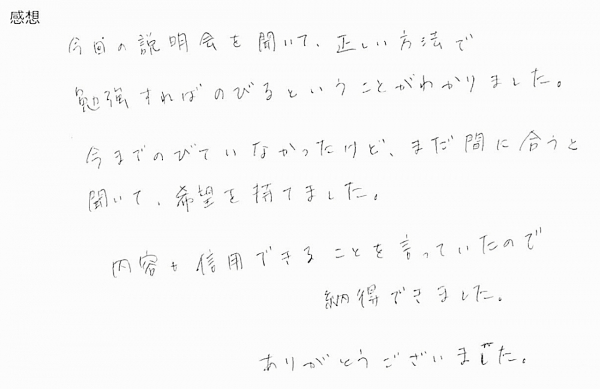 感想
今回の説明会を聞いて、正しい方法で
勉強すればのびるということがわかりました。
今までのびていなかったけど、まだ間に合うと
聞いて、希望を持てました。
内容も信用できることを言っていたので
納得できました。
ありがとうございました。